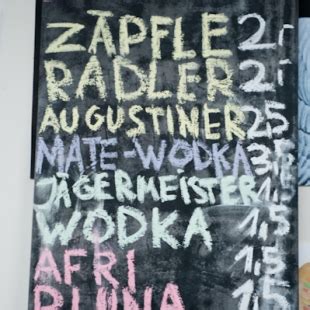 ZÄPFLE 2,-
RADLER 2,-
AUGUSTINER 2,5
MATE-WODKA 3,5
JÄGERMEISTER 1,5
WODKA 1,5
AFRI 1,5
PLUNA 1,5